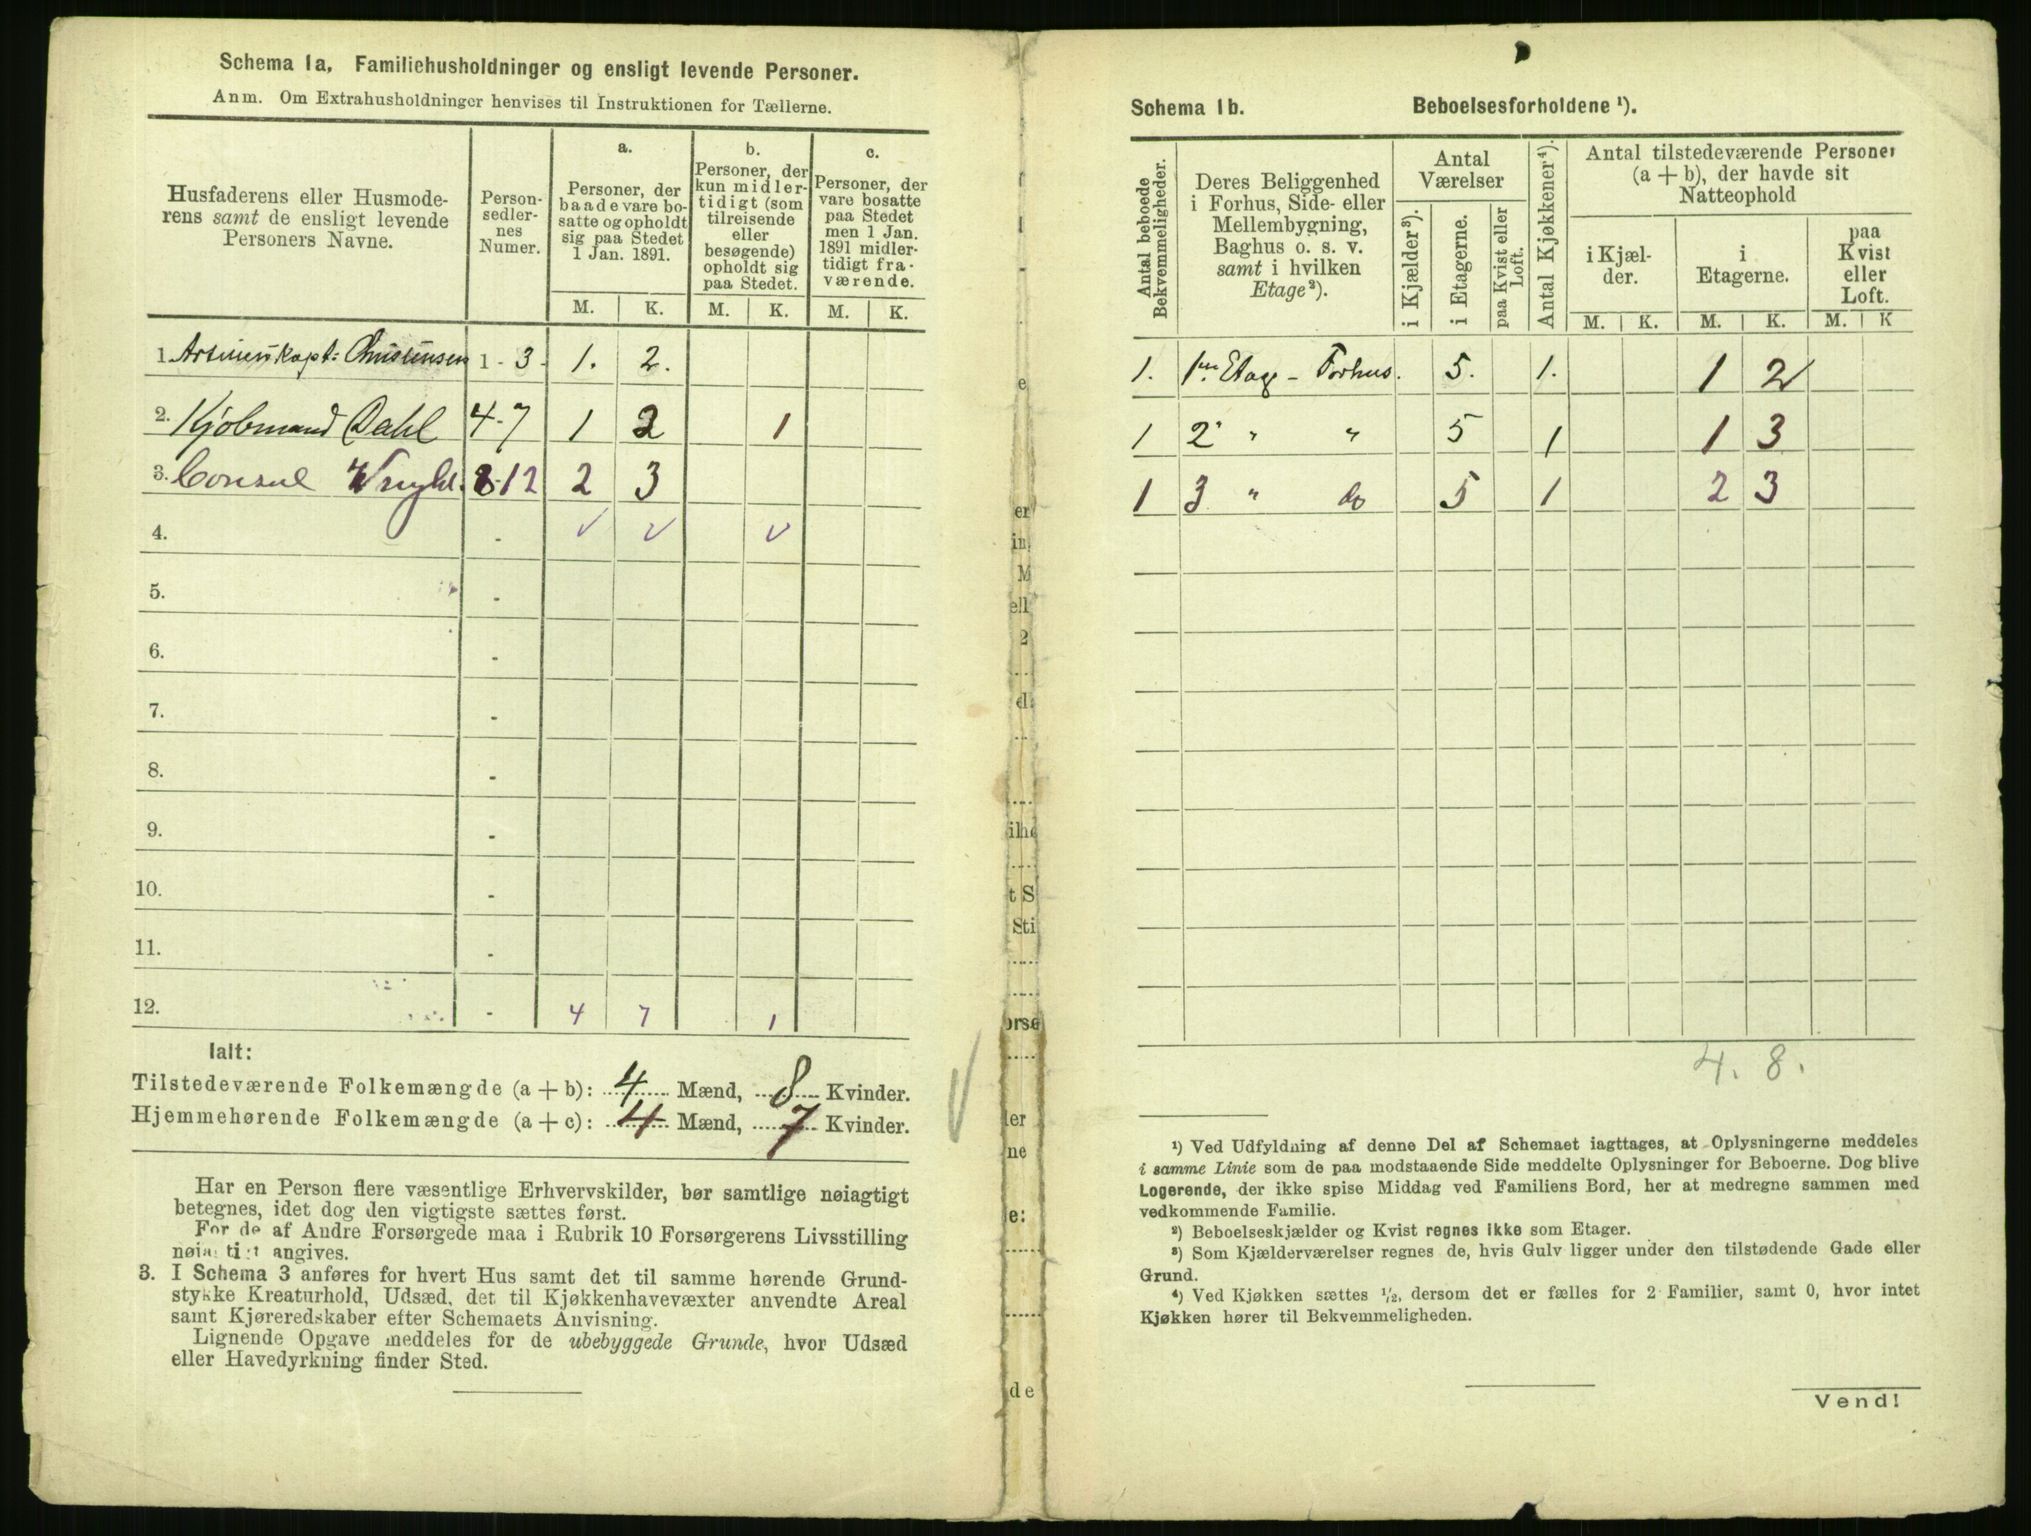 Schema 1a. Familiehusholdninger og ensligt levende Personer.
Anm. Om Extrahusholdninger henvises til Instruktionen for Tællerne.
Husfaderens eller Husmode-
rens samt de ensligt levende
Personers Navne.
Person-
sedler-
nes
Numer.
a.
Personer, der
baade vare bo-
satte og opholdt
sig paa Stedet
1 Jan. 1891.
b.
Personer, der
kun midler-
tidigt (som
tilreisende
eller
besøgende)
opholdt sig
paa Stedet.
c.
Personer, der
vare bosatte
paa Stedet
men 1 Jan.
1891 midler-
tidigt fra-
værende.
M. K. M. K. M. K.
1. Christensen 1 - 3 - 1. 2.
2. Kjøbmand Dahl 4-7 1 2 1
3. Consul 8-12 2 3
4. - √ √ √
5. -
6. -
7. -
8. -
9. -
10. -
11. -
12. - 4 7 1
Ialt:
Tilstedeværende Folkemængde (a + b): 4 Mænd, 8 Kvinder.
Hjemmehørende Folkemængde (a + c): 4 Mænd, 7 Kvinder.
Har en Person flere væsentlige Erhvervskilder, bør samtlige nøiagtigt
betegnes, idet dog den vigtigste sættes først.
For de af Andre Forsørgede maa i Rubrik 10 Forsørgerens Livsstilling
nøiagtigt angives.
3. I Schema 3 anføres for hvert Hus samt det til samme hørende Grund-
stykke Kreaturhold, Udsæd, det til Kjøkkenhavevæxter anvendte Areal
samt Kjøreredskaber efter Schemaets Anvisning.
Lignende Opgave meddeles for de ubebyggede Grunde, hvor Udsæd
eller Havedyrkning finder Sted.
e
er
in
M
ell
2
d
ilhe
t S
Sti
orse
ler
ne
e:
de
Schema 1b. Beboelsesforholdene ¹).
Antal beboede
Bekvemmeligheder.
Deres Beliggenhed
i Forhus, Side- eller
Mellembygning,
Baghus o. s. v.
samt i hvilken
Etage ²).
Antal
Værelser
i Kjælder ³).
i Etagerne.
paa Kvist eller
Loft.
Antal Kjøkkener ⁴).
Antal tilstedeværende Personer
(a + b), der havde sit
Natteophold
i Kjæl-
der.
i
Etagerne.
paa
Kvist
eller
Loft.
M. K. M. K. M. K
1. 1ste Etage - Forhus. 5. 1. 1 2
1 2 " " 5 1 1 3
1 3 " do 5 1 2 3
4. 8.
¹) Ved Udfyldning af denne Del af Schemaet iagttages, at Oplysningerne meddeles
i samme Linie som de paa modstaaende Side meddelte Oplysninger for Beboerne. Dog blive
Logerende, der ikke spise Middag ved Familiens Bord, her at medregne sammen med
vedkommende Familie.
²) Beboelseskjælder og Kvist regnes ikke som Etager.
³) Som Kjælderværelser regnes de, hvis Gulv ligger under den tilstødende Gade eller
Grund.
⁴) Ved Kjøkken sættes 1/2, dersom det er fælles for 2 Familier, samt 0, hvor intet
Kjøkken hører til Bekvemmeligheden.
Vend!